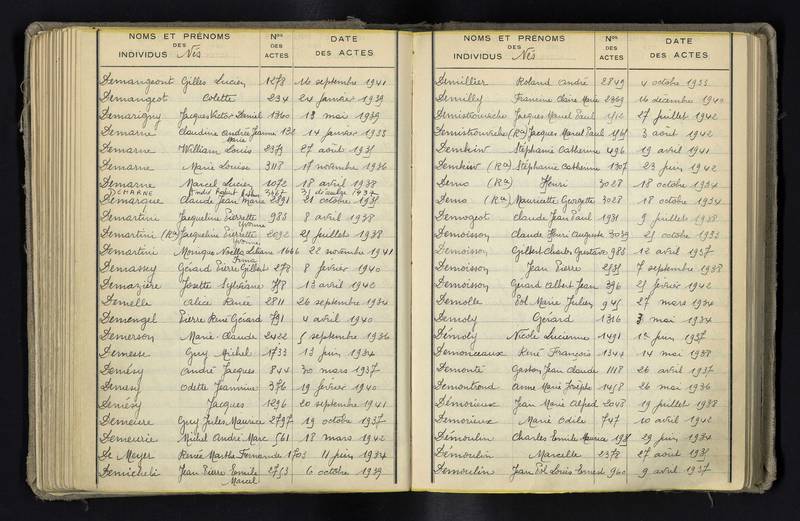 NOMS ET PRÉNOMS DES INDIVIDUS Nés
Nos DES ACTES
DATE DES ACTES
Demangeont Gilles Lucien 1278 16 septembre 1941
Demangeot Colette 234 24 janvier 1939
Demarigny Jacques Victor Daniel 1360 13 mai 1939
Demarne Claudine Andrée Jeanne Marie 136 14 janvier 1933
Demarne William Louis 2373 27 août 1935
Demarne Marie Louise 3118 17 novembre 1936
Demarne Marcel Lucien 1072 18 avril 1938
DEMARNE André Robert 31 décembre 1934
Demarque Claude Jean Marie 2891 21 octobre 1938
Demartini Jacqueline Pierrette Yvonne 985 8 avril 1938
Demartini (Ron) Jacqueline Pierrette Yvonne 2092 25 juillet 1938
Demartini Monique Noëlle Liliane Irma 1666 22 novembre 1941
Demassey Gérard Pierre Gilbert 278 8 février 1940
Demazière Josette Sylviane 758 13 avril 1942
Demelle Alice Renée 2811 26 septembre 1934
Demengel Pierre René Gérard 791 4 avril 1940
Demerson Marie-Claude 2422 5 septembre 1936
Demesse Guy Michel 1733 13 juin 1934
Demésy André Jacques 844 30 mars 1937
Demesy Odette Jeannine 376 19 février 1940
Demésy Jacques 1296 20 septembre 1941
Demeure Guy Jules Maurice 2797 19 octobre 1937
Demeurie Michel André Marc 561 18 mars 1942
De Meyer Renée Marthe Fernande 1703 11 juin 1934
Demichelis Jean Pierre Emile Marcel 2753 6 octobre 1939
NOMS ET PRÉNOMS DES INDIVIDUS Nés
Nos DES ACTES
DATE DES ACTES
Demillier Roland André 2849 4 octobre 1933
Demilly Francine Claire Marie 2369 16 décembre 1940
Demistrowache Jacques Marcel Paul 1512 27 juillet 1942
Jacques Marcel Paul 3 août 1942
Demkiw Stéphanie Catherine 496 19 avril 1941
Demkiw (Ron) Stéphanie Catherine 1307 23 juin 1942
Demo (Ron) Henri 3028 18 octobre 1934
Demo (Ron) Mauricette Georgette 3028 18 octobre 1934
Demogeot Claude Jean Paul 1931 9 juillet 1938
Demoisson Claude Henri Auguste 3039 25 octobre 1933
Demoisson Gilbert Charles Gustave 985 12 avril 1937
Demoisson Jean Pierre 2535 7 septembre 1938
Demoisson Gérard Albert Jean 396 25 février 1942
Demolle Pol Marie Julien 945 27 mars 1934
Demoly Gérard 1316 3 mai 1934
Démoly Nicole Lucienne 1491 1er juin 1937
Demonceaux René François 1344 14 mai 1938
Demonté Gaston Jean Claude 1118 26 avril 1937
Demontrond Anne Marie Josèphe 1458 26 mai 1936
Démorieux Jean Marie Alfred 2048 19 juillet 1938
Démorieux Marie Odile 747 10 avril 1942
Démoulin Charles Emile Maurice 1935 29 juin 1934
Démoulin Marcelle 2378 27 août 1935
Demoulin Jean Pol Louis Ernest 960 9 avril 1937